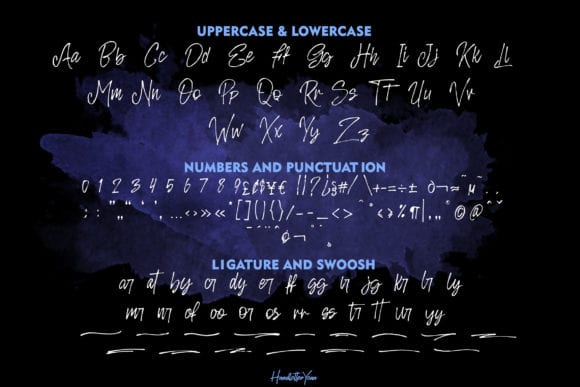 UPPERCASE & LOWERCASE
Aa Bb Cc Dd Ee Ff Gg Hh Ii Jj Kk Ll
Mm Nn Oo Pp Qq Rr Ss Tt Uu Vv
Ww Xx Yy Zz
NUMBERS AND PUNCTUATION
0 1 2 3 4 5 6 7 8 9 £ ¢ ¥ € ! ¡ ? ¿ § # / \ + - = ÷ ± ¬ ≈ ¨ µ
; : … ‹ › » « * [ ] ( | ) { } / - – _ < > ^ ° % ¶ | © @
¬
LIGATURE AND SWOOSH
ar at by cr dy er ff gg ir jg kr lr ly
mr nr of oo or os rr ss tr tt ur yy